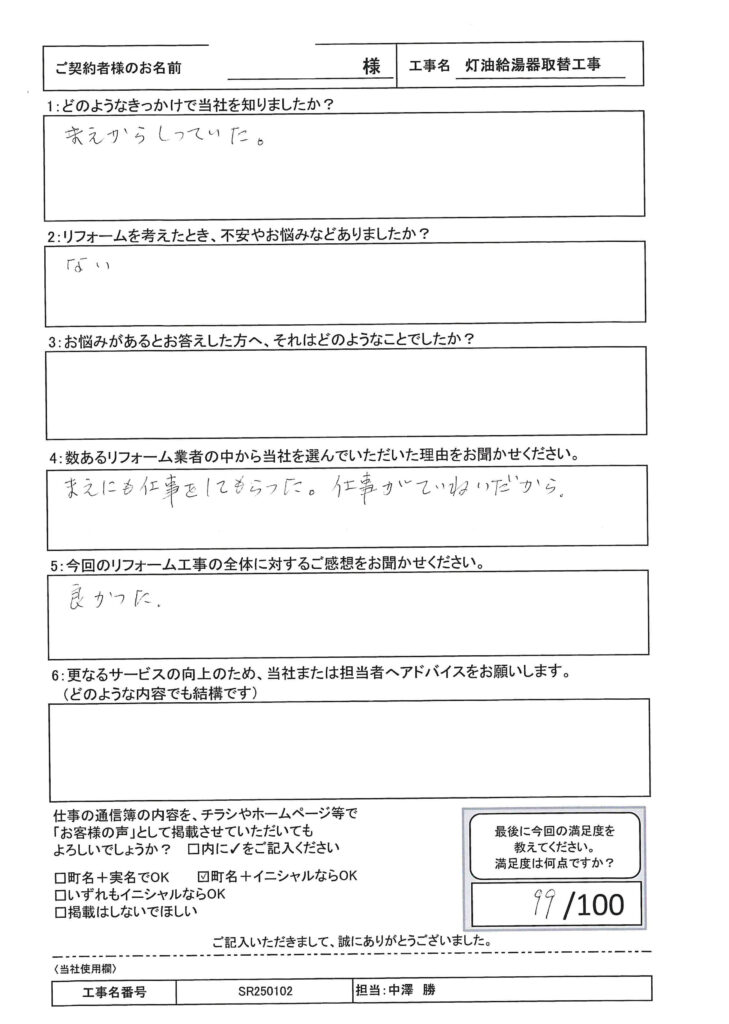 ご契約者様のお名前 様 工事名 灯油給湯器取替工事
1:どのようなきっかけで当社を知りましたか？
まえからしっていた。
2:リフォームを考えたとき、不安やお悩みなどありましたか？
ない
3:お悩みがあるとお答えした方へ、それはどのようなことでしたか？
4:数あるリフォーム業者の中から当社を選んでいただいた理由をお聞かせください。
まえにも仕事をしてもらった。仕事がていねいだから.
5:今回のリフォーム工事の全体に対するご感想をお聞かせください。
良かった.
6:更なるサービスの向上のため、当社または担当者へアドバイスをお願いします。
（どのような内容でも結構です）
仕事の通信簿の内容を、チラシやホームページ等で
「お客様の声」として掲載させていただいても
よろしいでしょうか？ □内に✓をご記入ください
□町名＋実名でOK ☑町名＋イニシャルならOK
□いずれもイニシャルならOK
□掲載はしないでほしい
最後に今回の満足度を
教えてください。
満足度は何点ですか？
99/100
ご記入いただきまして、誠にありがとうございました。
〈当社使用欄〉
工事名番号 SR250102 担当:中澤 勝